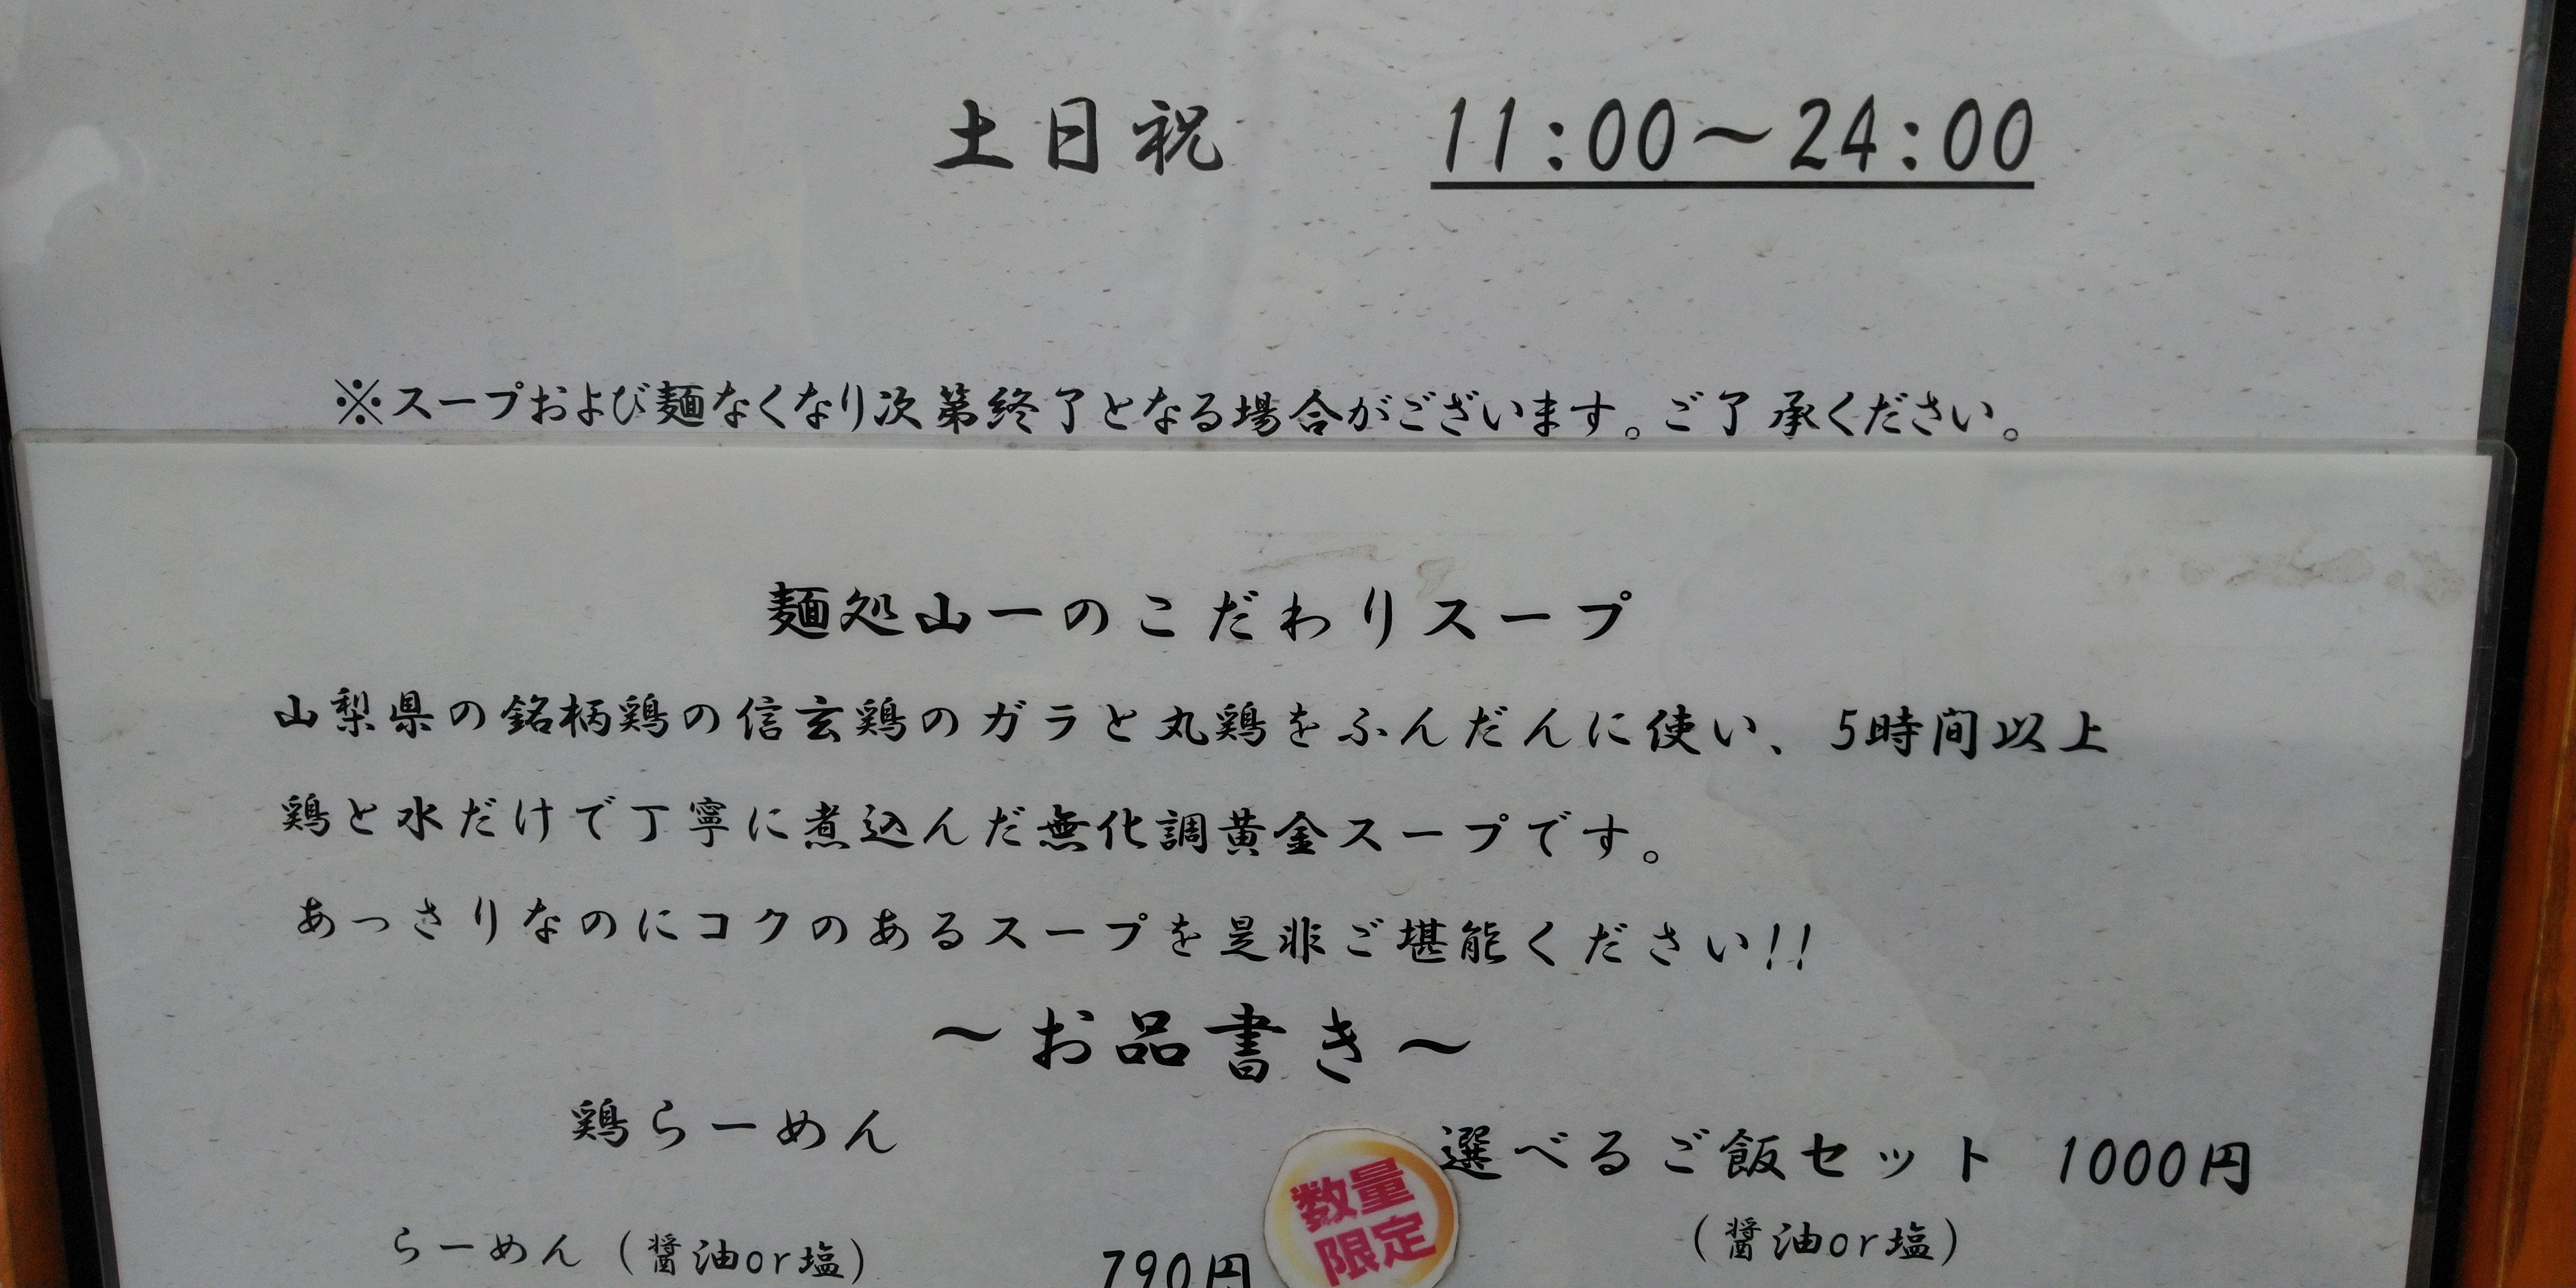 土日祝 11:00〜24:00
※スープおよび麺なくなり次第終了となる場合がございます。ご了承ください。
麺処山一のこだわりスープ
山梨県の銘柄鶏の信玄鶏のガラと丸鶏をふんだんに使い、5時間以上
鶏と水だけで丁寧に煮込んだ無化調黄金スープです。
あっさりなのにコクのあるスープを是非ご堪能ください!!
〜お品書き〜
鶏らーめん
らーめん（醤油or塩） 790円
数量
限定
選べるご飯セット 1000円
（醤油or塩）